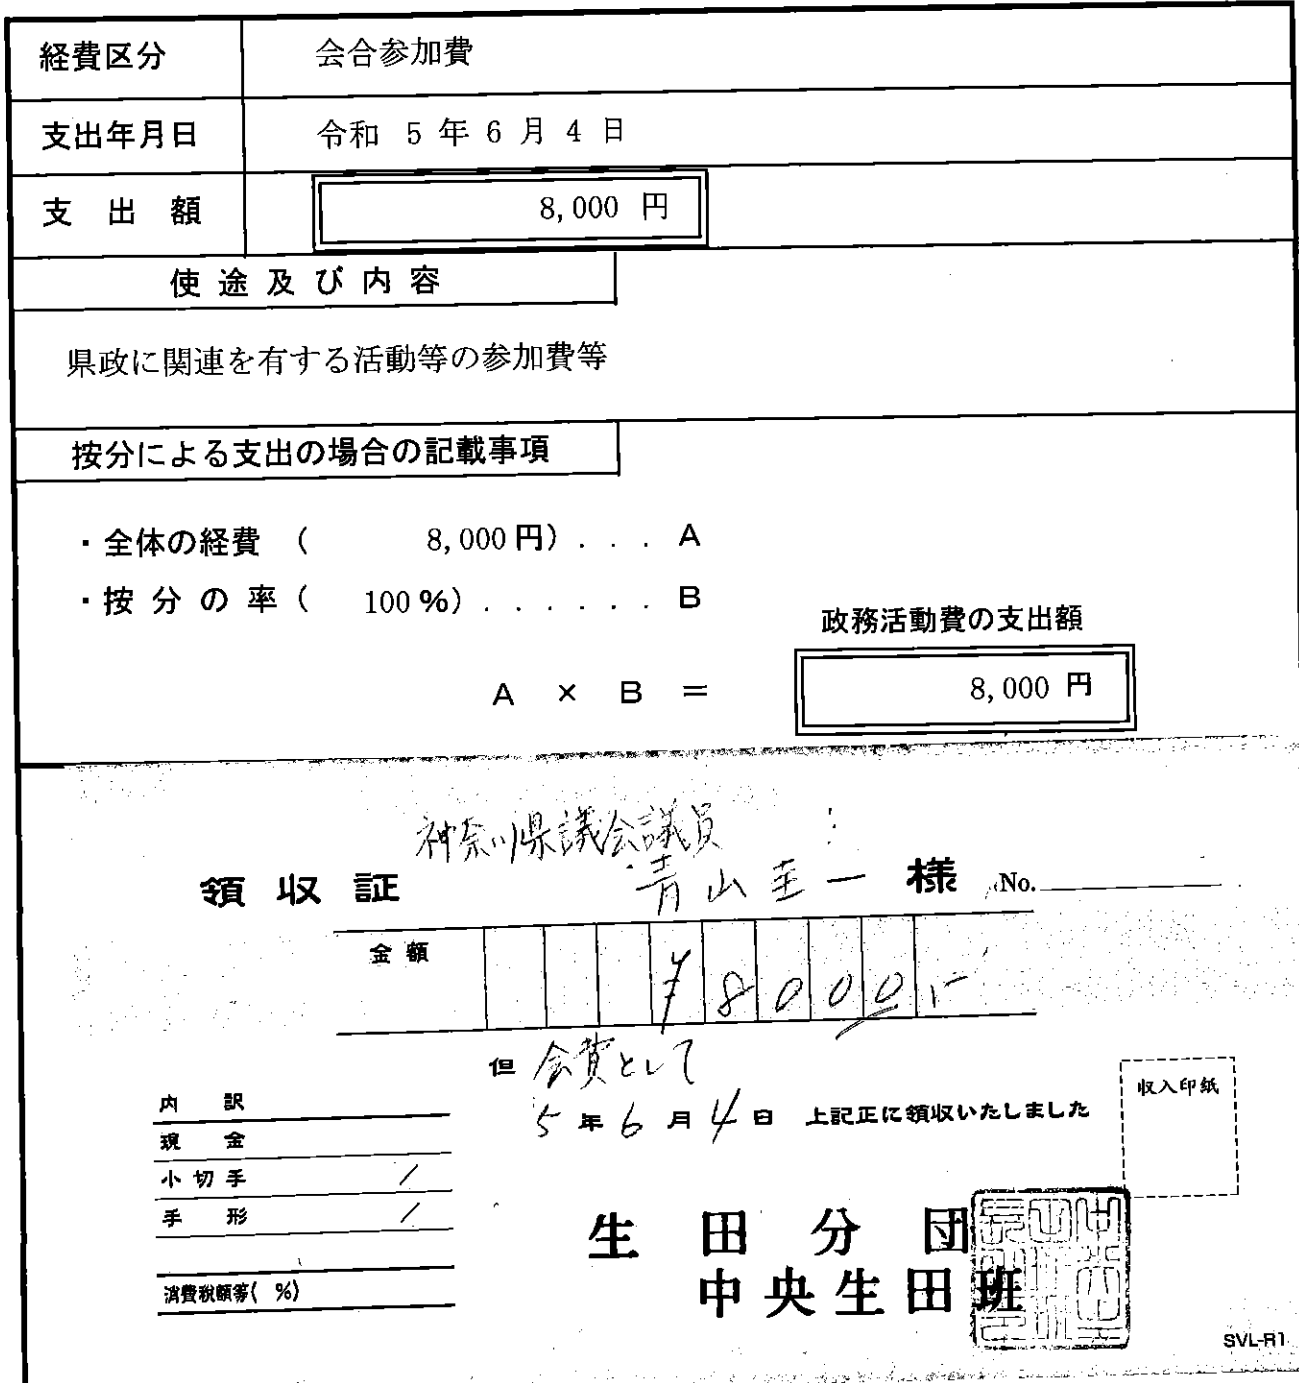 経費区分 会合参加費
支出年月日 令和 5 年 6 月 4 日
支出額 8,000 円
使途及び内容
県政に関連を有する活動等の参加費等
按分による支出の場合の記載事項
・全体の経費 ( 8,000円) . . . A
・按分の率( 100%) . . . . . . B
政務活動費の支出額
A × B = 8,000 円
神奈川県議会議員
領収証 青山圭一 様 No.
金額 ¥8000-
但 会費として
5年6月4日 上記正に領収いたしました
収入印紙
内訳
現金
小切手 /
手形 /
消費税額等( %)
生田分団
中央生田班
SVL-R1